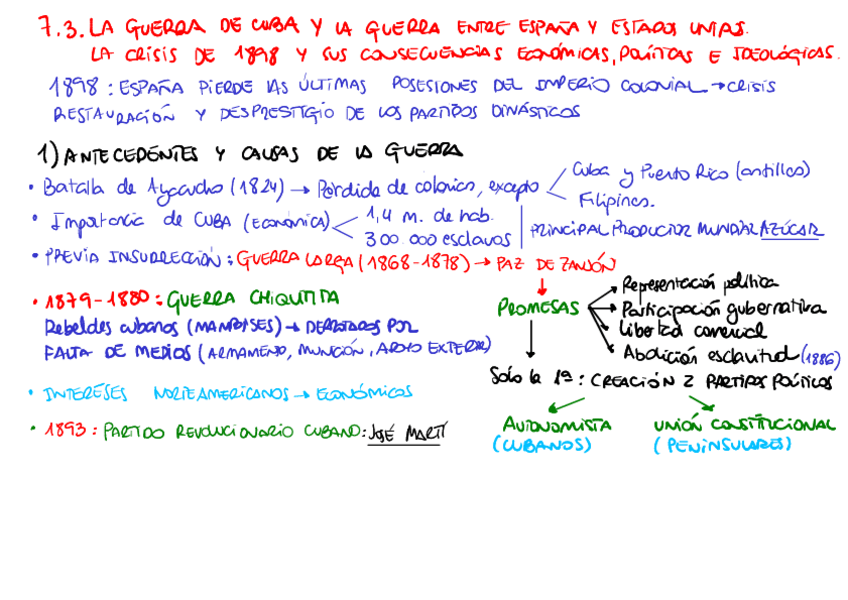 7.3. LA GUERRA DE CUBA Y LA GUERRA ENTRE ESPAÑA Y ESTADOS UNIDOS.
LA CRISIS DE 1898 Y SUS CONSECUENCIAS ECONÓMICAS, POLÍTICAS E IDEOLÓGICAS.
1898: ESPAÑA PIERDE LAS ÚLTIMAS POSESIONES DEL IMPERIO COLONIAL → CRISIS
RESTAURACIÓN Y DESPRESTIGIO DE LOS PARTIDOS DINÁSTICOS
1) ANTECEDENTES Y CAUSAS DE LA GUERRA
• Batalla de Ayacucho (1824) → Pérdida de colonias, excepto
Cuba y Puerto Rico (antillas)
Filipinas.
• Importancia de CUBA (ECONÓMICA)
1,4 m. de hab.
300.000 esclavos
PRINCIPAL PRODUCTOR MUNDIAL AZÚCAR
• PREVIA INSURRECCIÓN: GUERRA LARGA (1868-1878) → PAZ DE ZANJÓN
PROMESAS
Representación política
Participación gubernativa
Libertad comercial
Abolición esclavitud (1886)
Solo la 1ª: CREACIÓN 2 PARTIDOS POLÍTICOS
AUTONOMISTA
(CUBANOS)
UNIÓN CONSTITUCIONAL
(PENINSULARES)
• 1879-1880: GUERRA CHIQUITA
Rebeldes cubanos (MAMBISES) → DERROTADOS POR
FALTA DE MEDIOS (ARMAMENTO, MUNICIÓN, APOYO EXTERIOR)
• INTERESES NORTEAMERICANOS → ECONÓMICOS
• 1893: PARTIDO REVOLUCIONARIO CUBANO: JOSÉ MARTÍ